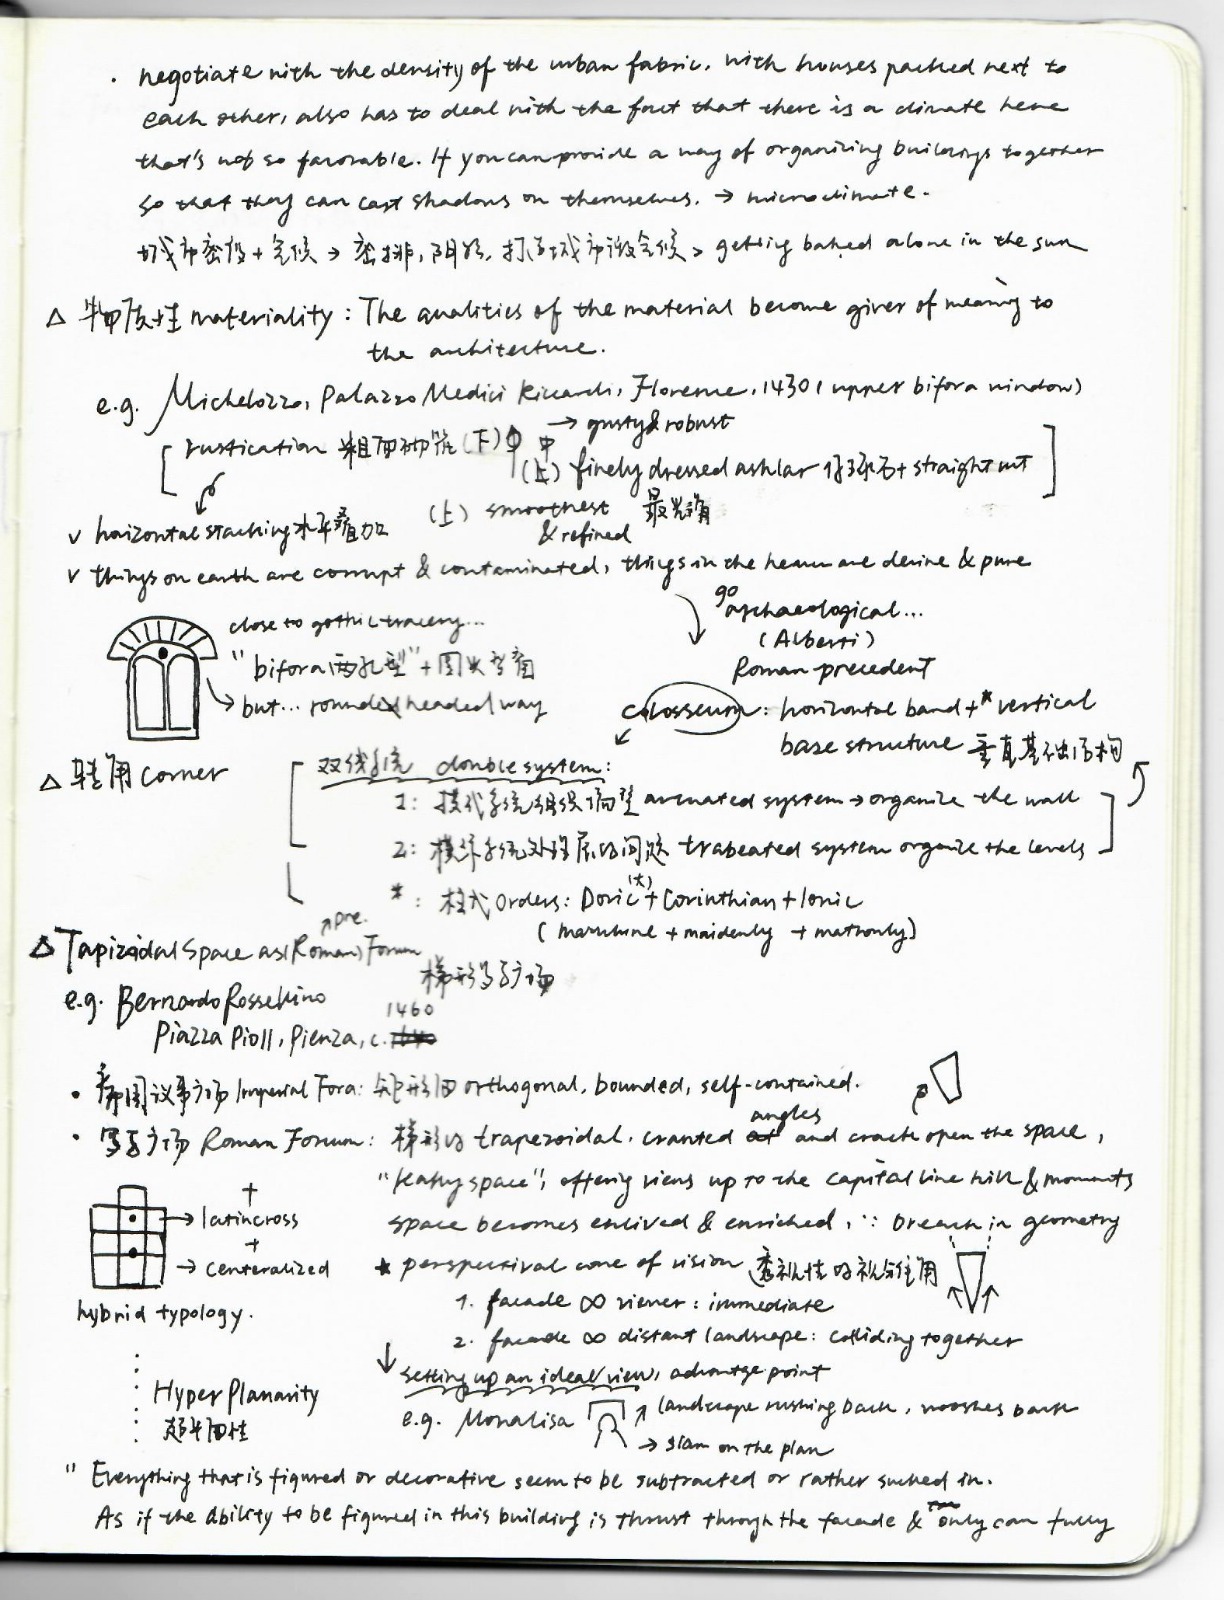 · negotiate with the density of the urban fabric. with houses packed next to
each other, also has to deal with the fact that there is a climate here
that's not so favorable. If you can provide a way of organizing buildings together
so that they can cast shadows on themselves. → microclimate.
城市密度+气候 → 密排, 阴影, 打造城市微气候 > getting baked alone in the sun
△ 物质性 materiality: The qualities of the material become giver of meaning to
the architecture.
e.g. Michelozzo, Palazzo Medici Riccardi, Florence, 1430 (upper bifora window)
[ rustication 粗面砌筑 (下) 中 → gusty & robust
(上) finely dressed ashlar + straight cut ]
(上) smoothest 最光滑
& refined
v horizontal stacking 水平叠加
v things on earth are corrupt & contaminated, things in the heaven are devine & pure
close to gothic tracery...
"bifora (两孔型)" + 圆
→ but... rounded headed way
go archaeological...
(Alberti)
Roman precedent
Colosseum: horizontal band + * vertical
base structure 垂直基础结构
△ 转角 corner
双线系统 double system:
1: 拱式系统组织墙型 arcuated system → organize the wall
2: 横梁系统处理层的问题 trabeated system organize the levels
* : 柱式 Orders: Doric + Corinthian + Ionic
(大)
(masculine + maidenly + matronly)
↗ pre.
△ Tapizoidal Space as (Roman) Forum
梯形罗马广场
e.g. Bernardo Rossellino
1460
Piazza Pio II, Pienza, c.
• 帝国议事广场 Imperial Fora: 矩形的 orthogonal, bounded, self-contained.
• 罗马广场 Roman Forum: 梯形的 trapezoidal. cranted angles and crack open the space,
"leaky space", offering views up to the capital line hill & moments
space becomes enlived & enriched, ∵ breach in geometry
→ latin cross
+
→ centeralized
hybrid typology.
* perspectival cone of vision 透视性的视锥角
1. facade ∞ viewer: immediate
2. facade ∞ distant landscape: colliding together
↓ setting up an ideal view, advantge point
e.g. Monalisa ↗ landscape rushing back, wooshes back
→ slam on the plan
Hyper Planarity
超平面性
" Everything that is figured or decorative seem to be subtracted or rather sucked in.
As if the ability to be figured in this building is thrust through the facade & only can fully